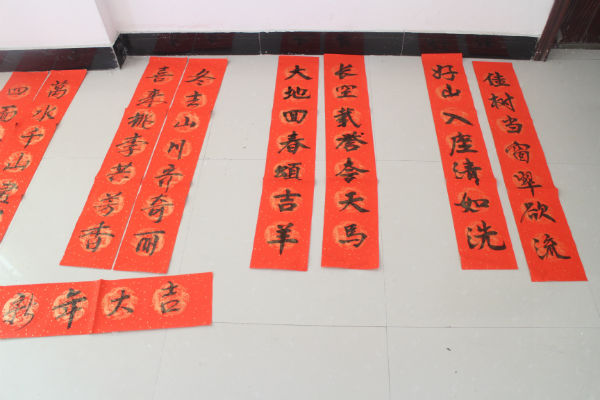 佳树当窗翠欲流
好山入座清如洗
长空载誉奔天马
大地回春颂吉羊
冬去山川齐奇丽
喜来桃李共芳香
萬水千山
四面
年大吉